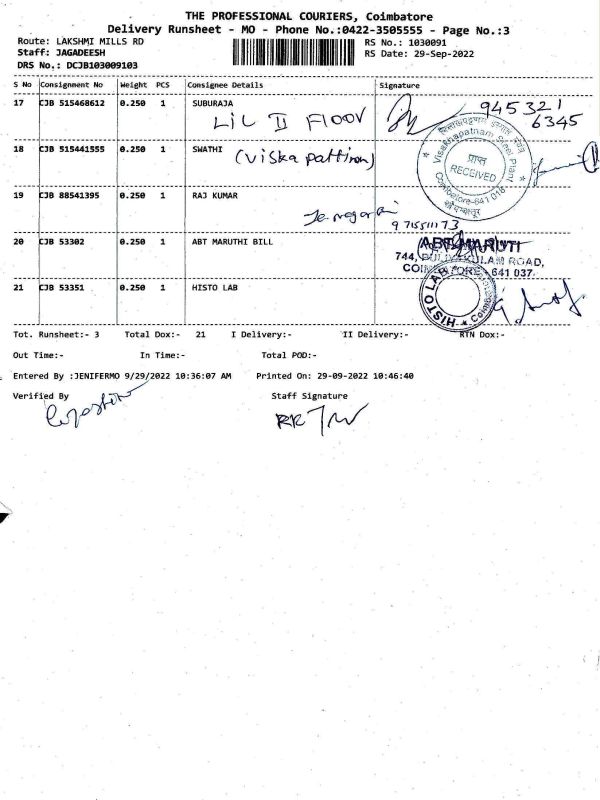 THE PROFESSIONAL COURIERS, Coimbatore
Delivery Runsheet - MO - Phone No.:0422-3505555 - Page No.:3
Route: LAKSHMI MILLS RD RS No.: 1030091
Staff: JAGADEESH RS Date: 29-Sep-2022
DRS No.: DCJB103009103
S No Consignment No Weight PCS Consignee Details Signature
17 CJB 515468612 0.250 1 SUBURAJA
LIL II Floor
945321
6345
18 CJB 515441555 0.250 1 SWATHI
(Viska pattinam)
विशाखपट्टणम इस्पात संयंत्र
Visakhapatnam Steel Plant
प्राप्त
RECEIVED
Coimbatore-641 018
कोयम्बत्तूर
19 CJB 88541395 0.250 1 RAJ KUMAR
9715511173
20 CJB 53302 0.250 1 ABT MARUTHI BILL
ABT MARUTI
744, PULIYAKULAM ROAD,
COIMBATORE - 641 037.
21 CJB 53351 0.250 1 HISTO LAB
HISTO LAB
Tot. Runsheet:- 3 Total Dox:- 21 I Delivery:- II Delivery:- RTN Dox:-
Out Time:- In Time:- Total POD:-
Entered By :JENIFERMO 9/29/2022 10:36:07 AM Printed On: 29-09-2022 10:46:40
Verified By Staff Signature